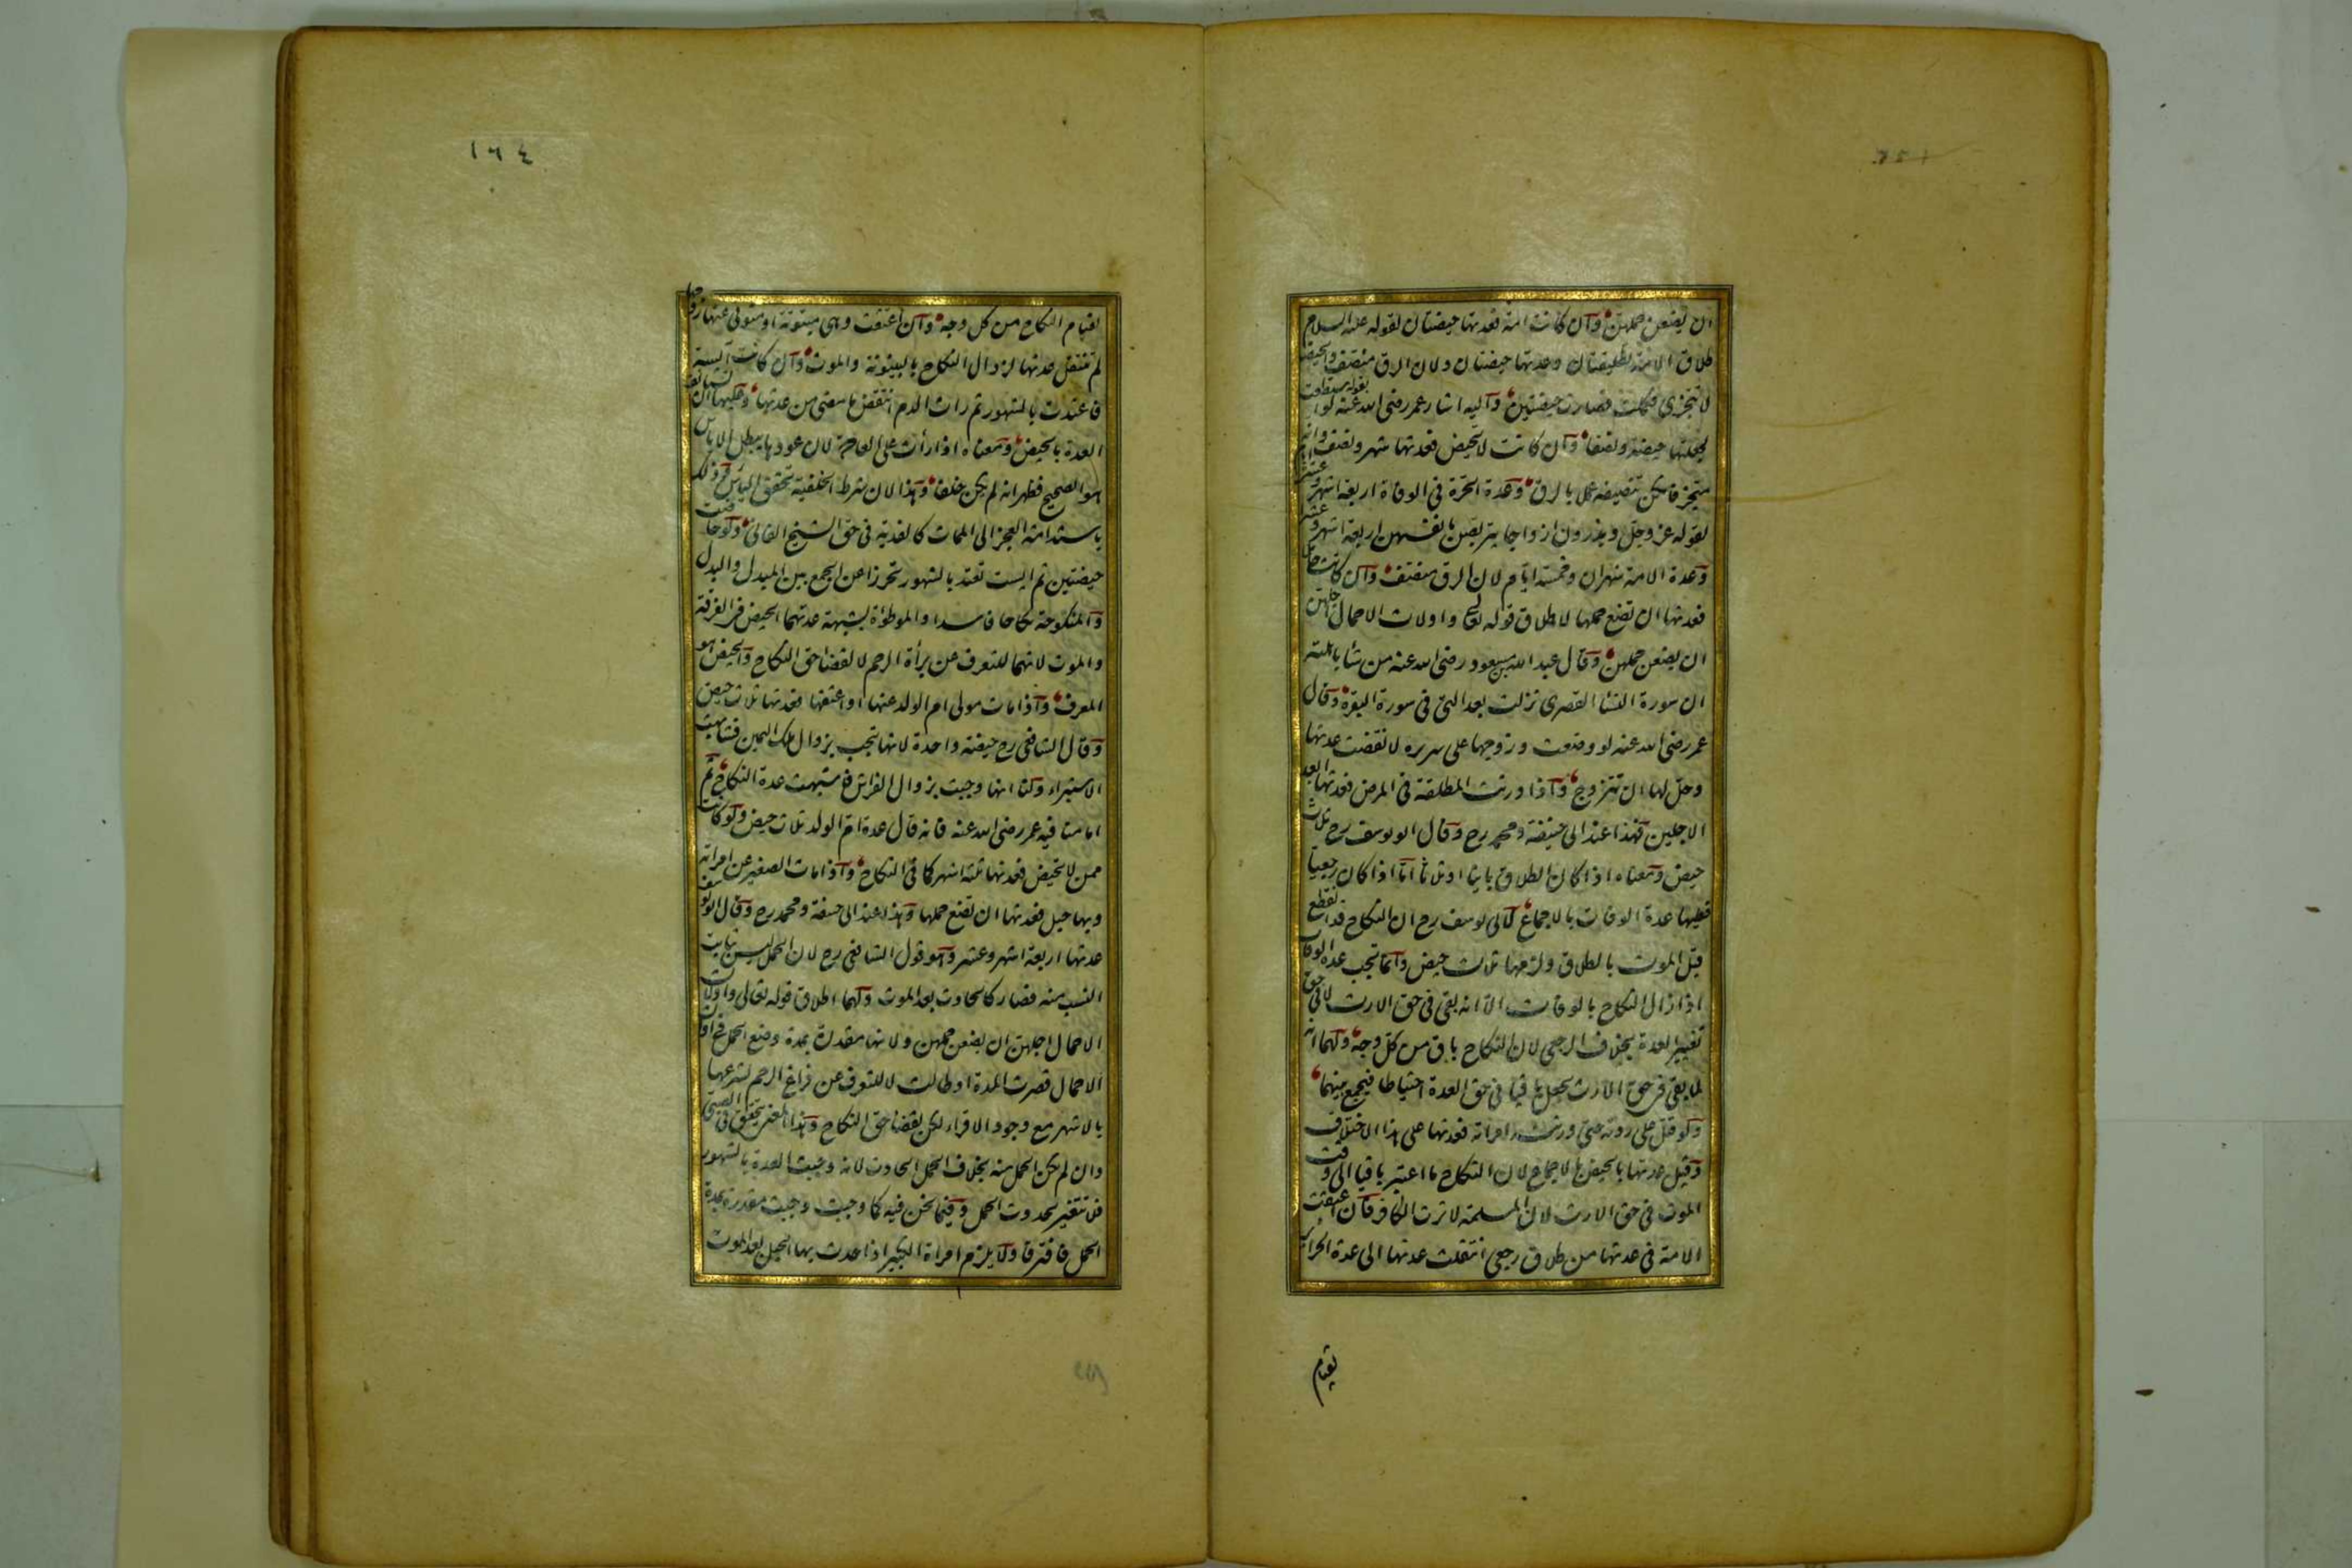 ان يضعن حملهن وان كانت امة فعدتها حيضتان لقوله عليه السلام
طلاق الامة تطليقتان وعدتها حيضتان ولان الرق منصف والحيضة
لا تتجزى فكملت فصارت حيضتين واليه اشار عمر رضى الله عنه بقوله لو استطعت
لجعلتها حيضة ونصفا وان كانت لا تحيض فعدتها شهر ونصف لانه
متجز فامكن تنصيفه عمل بالرق وعدة الحرة فى الوفاة اربعة اشهر وعشر
لقوله عز وجل ويذرون ازواجا يتربصن بانفسهن اربعة اشهر وعشر
وعدة الامة شهران وخمسة ايام لان الرق منصف وان كانت حاملا
فعدتها ان تضع حملها لاطلاق قوله تعالى واولات الاحمال اجلهن
ان يضعن حملهن وقال عبد الله بن مسعود رضى الله عنه من شا باهلته
ان سورة النسا القصرى نزلت بعد التى فى سورة البقرة وقال
عمر رضى الله عنه لو وضعت وزوجها على سريره لانقضت عدتها
وحل لها ان تتزوج واذا ورثت المطلقة فى المرض فعدتها ابعد
الاجلين فهذا عند ابى حنيفة ومحمد رح وقال ابو يوسف رح ثلاث
حيض ومعناه اذا كان الطلاق باينا او ثلاثا اما اذا كان رجعيا
فعليها عدة الوفات بالاجماع لابى يوسف رح ان النكاح قد انقطع
قبل الموت بالطلاق ولزمها ثلاث حيض وانما تجب عدة الوفات
اذا زال النكاح بالوفات الا انه بقى فى حق الارث لا فى حق
تغيير العدة بخلاف الرجعى لان النكاح باق من كل وجه ولهما انه
لما بقى فى حق الارث يجعل باقيا فى حق العدة احتياطا فيجمع بينهما
ولو قتل على ردته حتى ورثته امراته فعدتها على هذا الاختلاف
وقيل عدتها بالحيض بالاجماع لان النكاح ما اعتبر باقيا الى وقت
الموت فى حق الارث لان المسلمة لا ترث الكافر فان اعتقت
الامة فى عدتها من طلاق رجعى انتقلت عدتها الى عدة الحرائر
لقيام
١٦٤
لقيام النكاح من كل وجه وان اعتقت وهى مبتوتة او متوفى عنها زوجها
لم تنتقل عدتها لزوال النكاح بالبينونة والموت وان كانت آيسة
فاعتدت بالشهور ثم رات الدم انتقض ما مضى من عدتها وعليها ان تستانف
العدة بالحيض ومعناه اذا رأت على العادة لان عودها يبطل الاياس
هو الصحيح فظهر انه لم يكن خلفا وهذا لان شرط الخلفية تحقق الياس وذلك
باستدامة العجز الى الممات كالفدية فى حق الشيخ الفانى ولو حاضت
حيضتين ثم ايست تعتد بالشهور تحرزا عن الجمع بين المبدل والبدل
والمنكوحة نكاحا فاسدا والموطوءة بشبهة عدتهما الحيض فى الفرقة
والموت لانهما للتعرف عن برأة الرحم لا لقضا حق النكاح والحيض هو
المعرف واذا مات مولى ام الولد عنها او اعتقها فعدتها ثلاث حيض
وقال الشافعى رح حيضة واحدة لانها تجب بزوال ملك اليمين فشابهت
الاستبراء ولنا انها وجبت بزوال الفراش فاشبهت عدة النكاح ثم
امامنا فيه عمر رضى الله عنه فانه قال عدة ام الولد ثلاث حيض ولو كانت
ممن لا تحيض فعدتها ثلثة اشهر كما فى النكاح واذا مات الصغير عن امراته
وبها حبل فعدتها ان تضع حملها وهذا عند ابى حنيفة ومحمد رح وقال ابو يوسف
عدتها اربعة اشهر وعشر وهو قول الشافعى رح لان الحمل ليس بثابت
النسب منه فصار كالحادث بعد الموت ولهما اطلاق قوله تعالى واولات
الاحمال اجلهن ان يضعن حملهن ولانها مقدرة بمدة وضع الحمل فى اولات
الاحمال قصرت المدة او طالت لا للتعرف عن فراغ الرحم لشرعها
بالاشهر مع وجود الاقراء لكن لقضا حق النكاح وهذا المعنى يتحقق فى الصبى
وان لم يكن الحمل منه بخلاف الحمل الحادث لانه وجبت العدة بالشهور
فلا تتغير بحدوث الحمل وفيما نحن فيه كما وجبت وجبت مقدرة بمدة
الحمل فافترقا ولا يلزم امراة الكبير اذا حدث بها الحبل بعد الموت